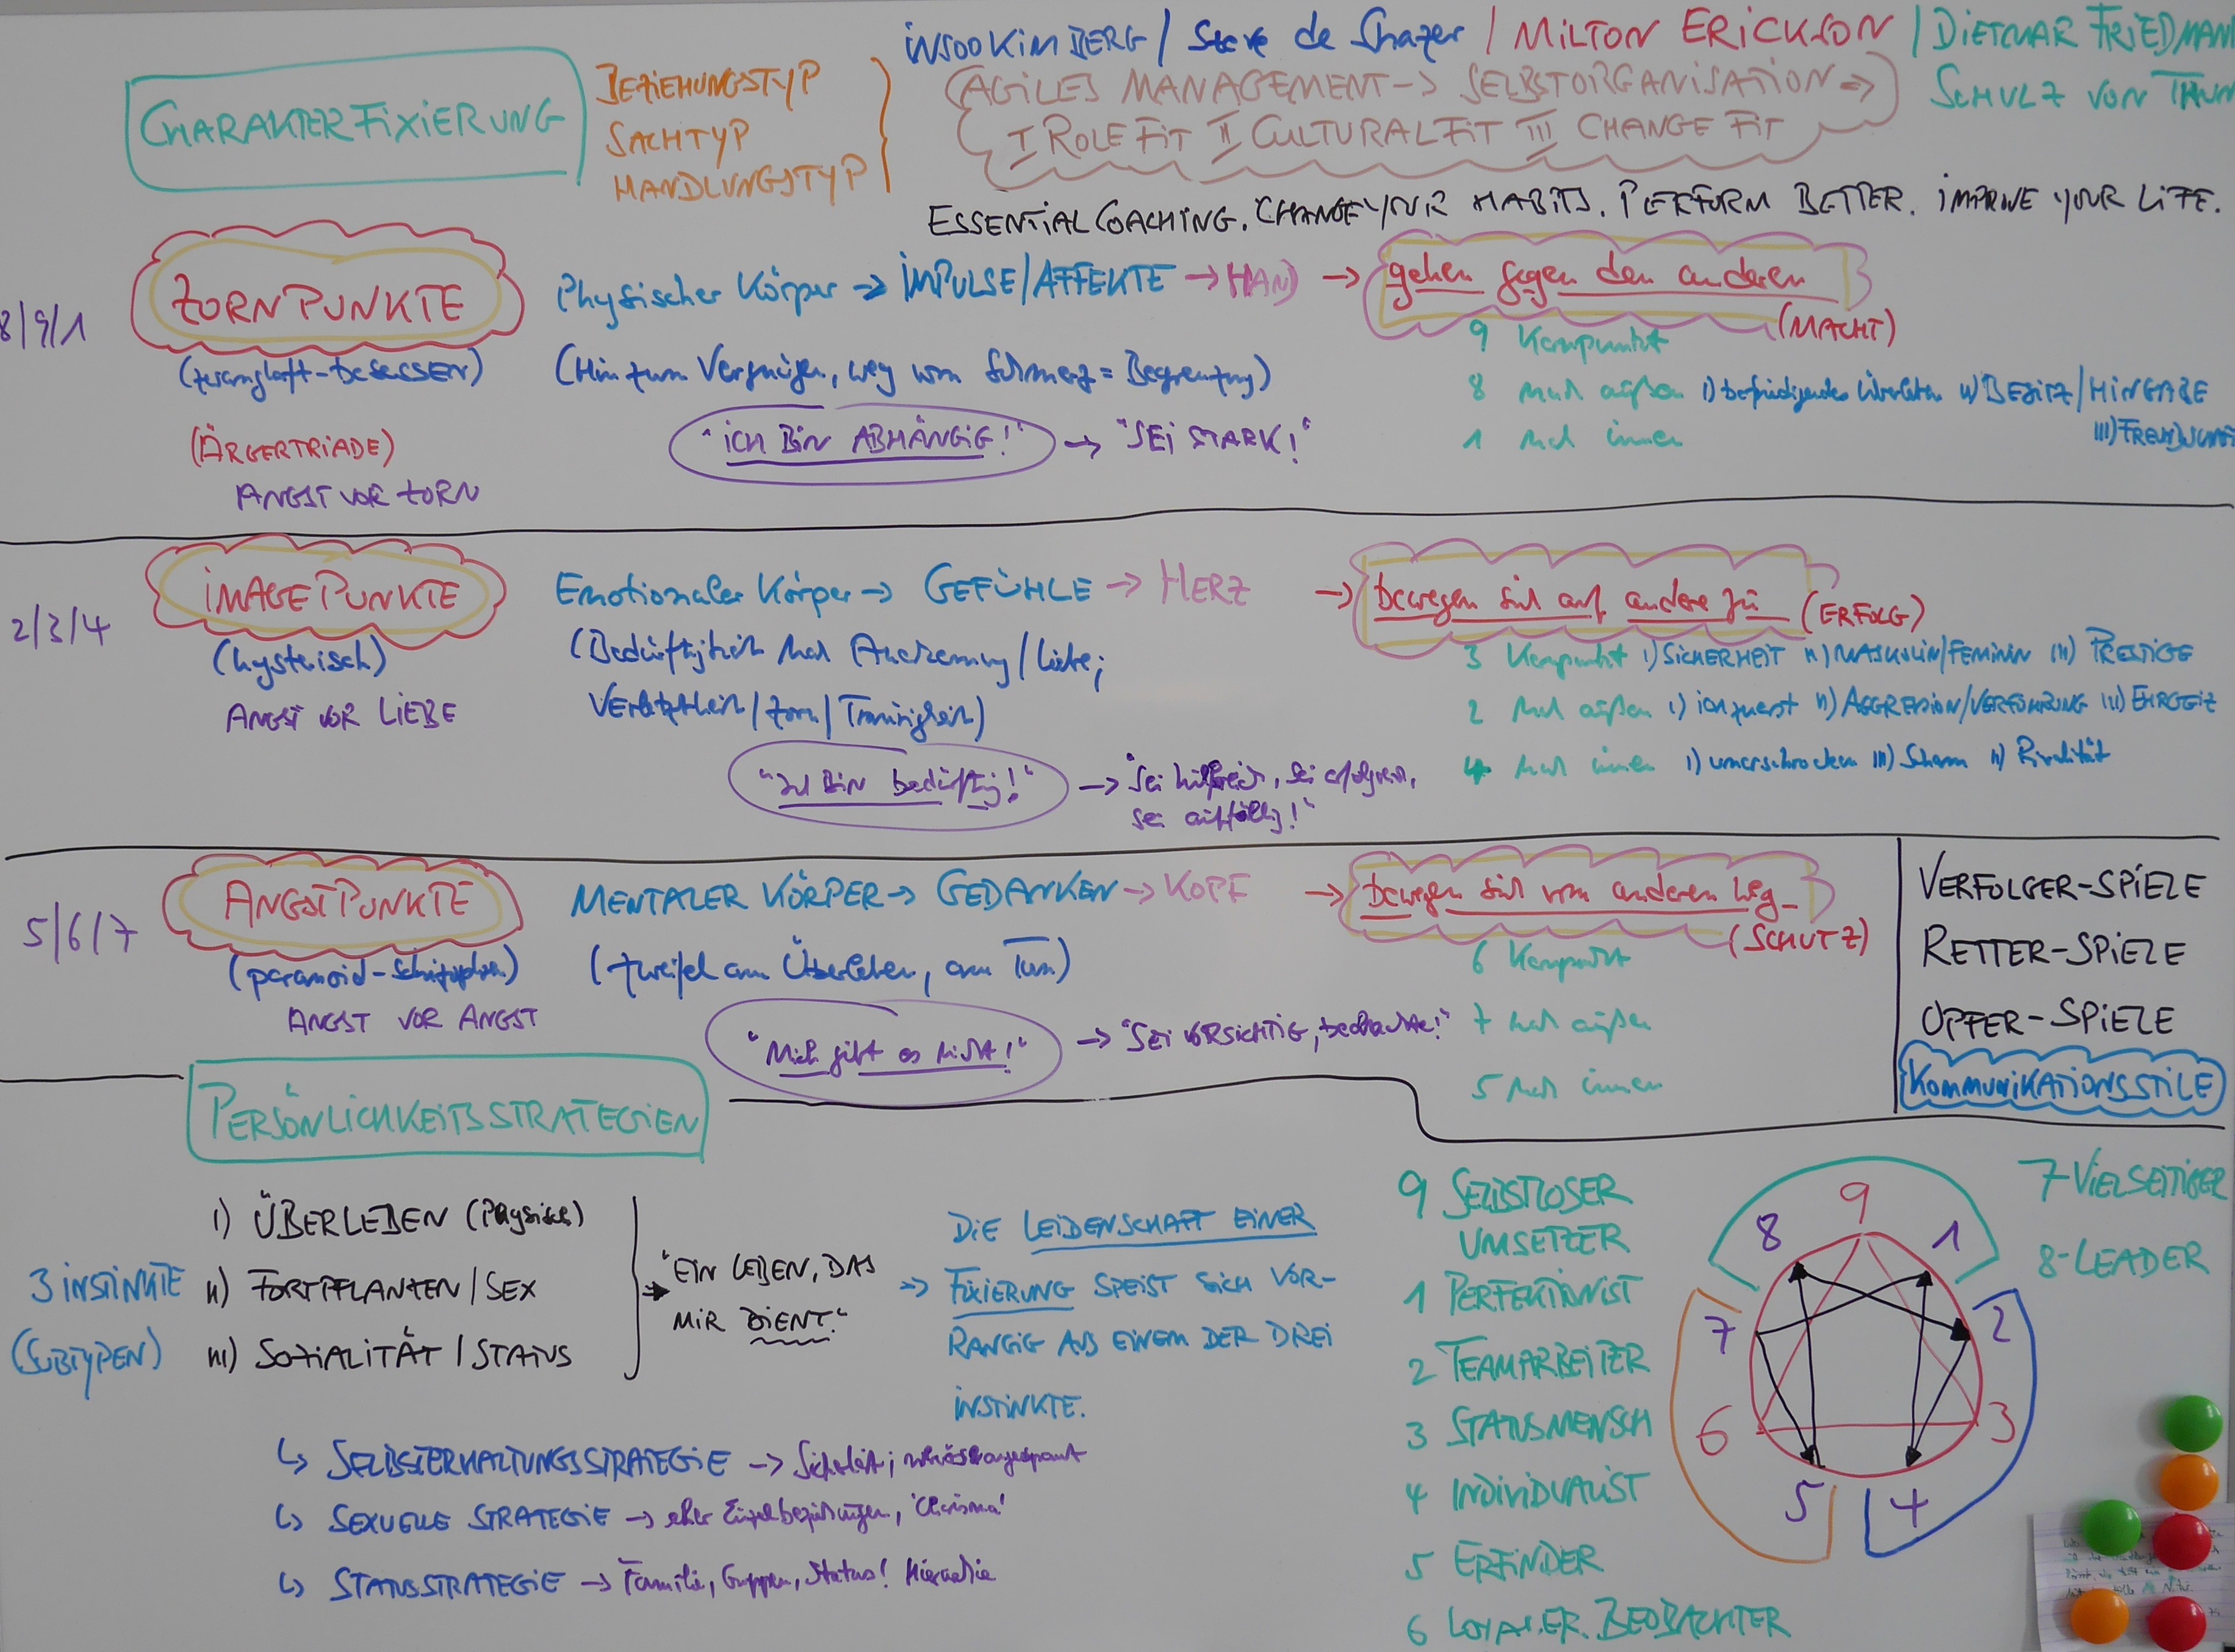 INSOO KIM BERG / Steve de Shazer / MILTON ERICKSON / DIETMAR FRIEDMANN
SCHULZ VON THUN
CHARAKTERFIXIERUNG
BEZIEHUNGSTYP
SACHTYP
HANDLUNGSTYP
(AGILES MANAGEMENT -> SELBSTORGANISATION =>)
I ROLE FIT II CULTURAL FIT III CHANGE FIT
ESSENTIAL COACHING. CHANGE YOUR HABITS. PERFORM BETTER. IMPROVE YOUR LIFE.
8/9/1
ZORNPUNKTE
(zwanghaft-besessen)
(ÄRGERTRIADE)
ANGST VOR ZORN
Physischer Körper -> IMPULSE/AFFEKTE -> HAND -> gehen gegen den anderen
(MACHT)
(Hin zum Vergnügen, weg vom Schmerz = Begrenzung)
"ICH BIN ABHÄNGIG!" -> "SEI STARK!"
9 Kernpunkt
8 nach außen I) befriedigendes Überleben II) BESITZ/HINGABE
III) FREUNDSCHAFT
1 nach innen
2/3/4
IMAGEPUNKTE
(hysterisch)
ANGST VOR LIEBE
Emotionaler Körper -> GEFÜHLE -> HERZ -> bewegen sich auf andere zu (ERFOLG)
(Bedürftigkeit nach Anerkennung/Liebe;
Verletztheit/Zorn/Traurigkeit)
"Ich BIN bedürftig!" -> "Sei hilfreich, sei erfolgreich,
sei auffällig!"
3 Kernpunkt I) SICHERHEIT II) MASKULIN/FEMININ III) PRESTIGE
2 nach außen I) ich zuerst II) AGGRESSION/VERFÜHRUNG III) EHRGEIZ
4 nach innen I) unerschrocken III) Scham II) Rivalität
5/6/7
ANGSTPUNKTE
(paranoid-schizophren)
ANGST VOR ANGST
MENTALER KÖRPER -> GEDANKEN -> KOPF -> bewegen sich vom anderen weg
(SCHUTZ)
(Zweifel am Überleben, am Tun)
"Mich gibt es nicht!" -> "SEI VORSICHTIG, beobachte!"
6 Kernpunkt
7 nach außen
5 nach innen
VERFOLGER-SPIELE
RETTER-SPIELE
OPFER-SPIELE
KOMMUNIKATIONSSTILE
PERSÖNLICHKEITSSTRATEGIEN
3 INSTINKTE
(SUBTYPEN)
I) ÜBERLEBEN (Physisch)
II) FORTPFLANZEN/SEX
III) SOZIALITÄT/STATUS
"EIN LEBEN, DAS
MIR DIENT."
=> DIE LEIDENSCHAFT EINER
FIXIERUNG SPEIST SICH VOR-
RANGIG AUS EINEM DER DREI
INSTINKTE.
SELBSTERHALTUNGSSTRATEGIE -> Sicherheit;
SEXUELLE STRATEGIE -> eher Einzelbeziehungen, 'Charisma'
STATUSSTRATEGIE -> Familie, Gruppen, Status! Hierarchie
9 SELBSTLOSER
UMSETZER
1 PERFEKTIONIST
2 TEAMARBEITER
3 STATUSMENSCH
4 INDIVIDUALIST
5 ERFINDER
6 LOYALER BEOBACHTER
7-VIELSEITIGER
8-LEADER
9
8
1
7
2
6
3
5
4